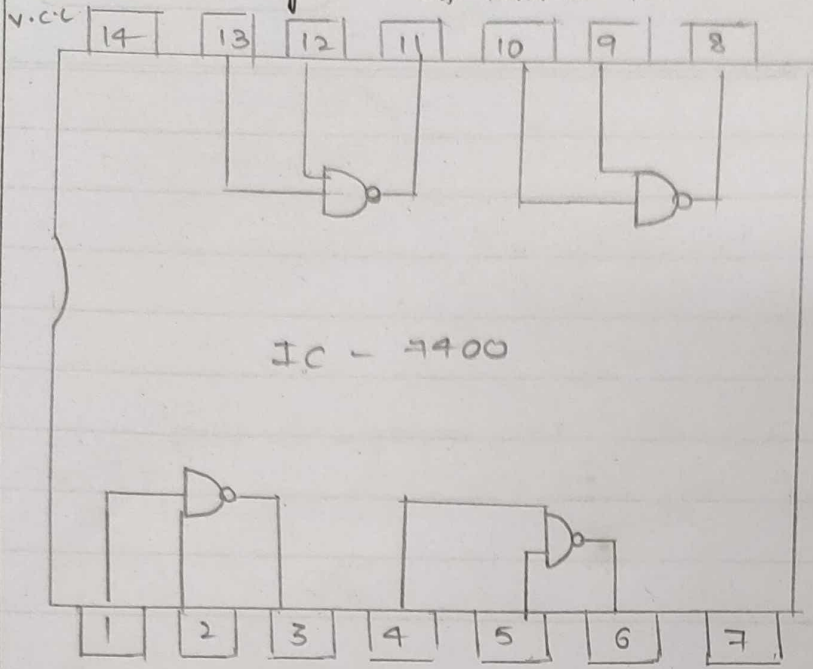 V.C.C 14 13 12 11 10 9 8
IC - 7400
1 2 3 4 5 6 7